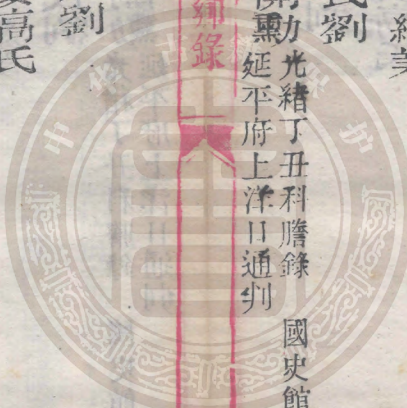 經
氏劉
力光緒丁丑科謄錄 國史館
勳延平府上洋口通判
鄉錄
劉
高氏